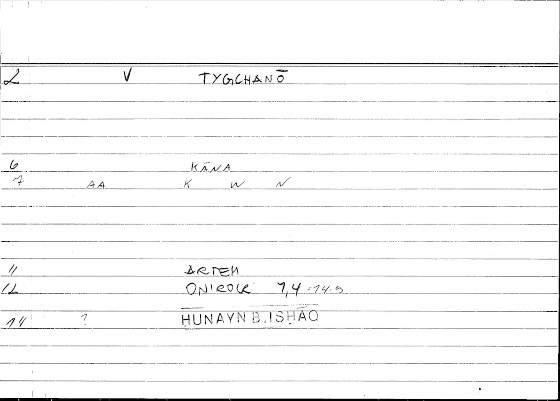 2 V TYGCHANŌ
6 KĀNA
7 AA K W N
11 ARTEM
12 ONIROCR 1,4 :14.9
14 ? ḤUNAYN B. ISḤĀQ